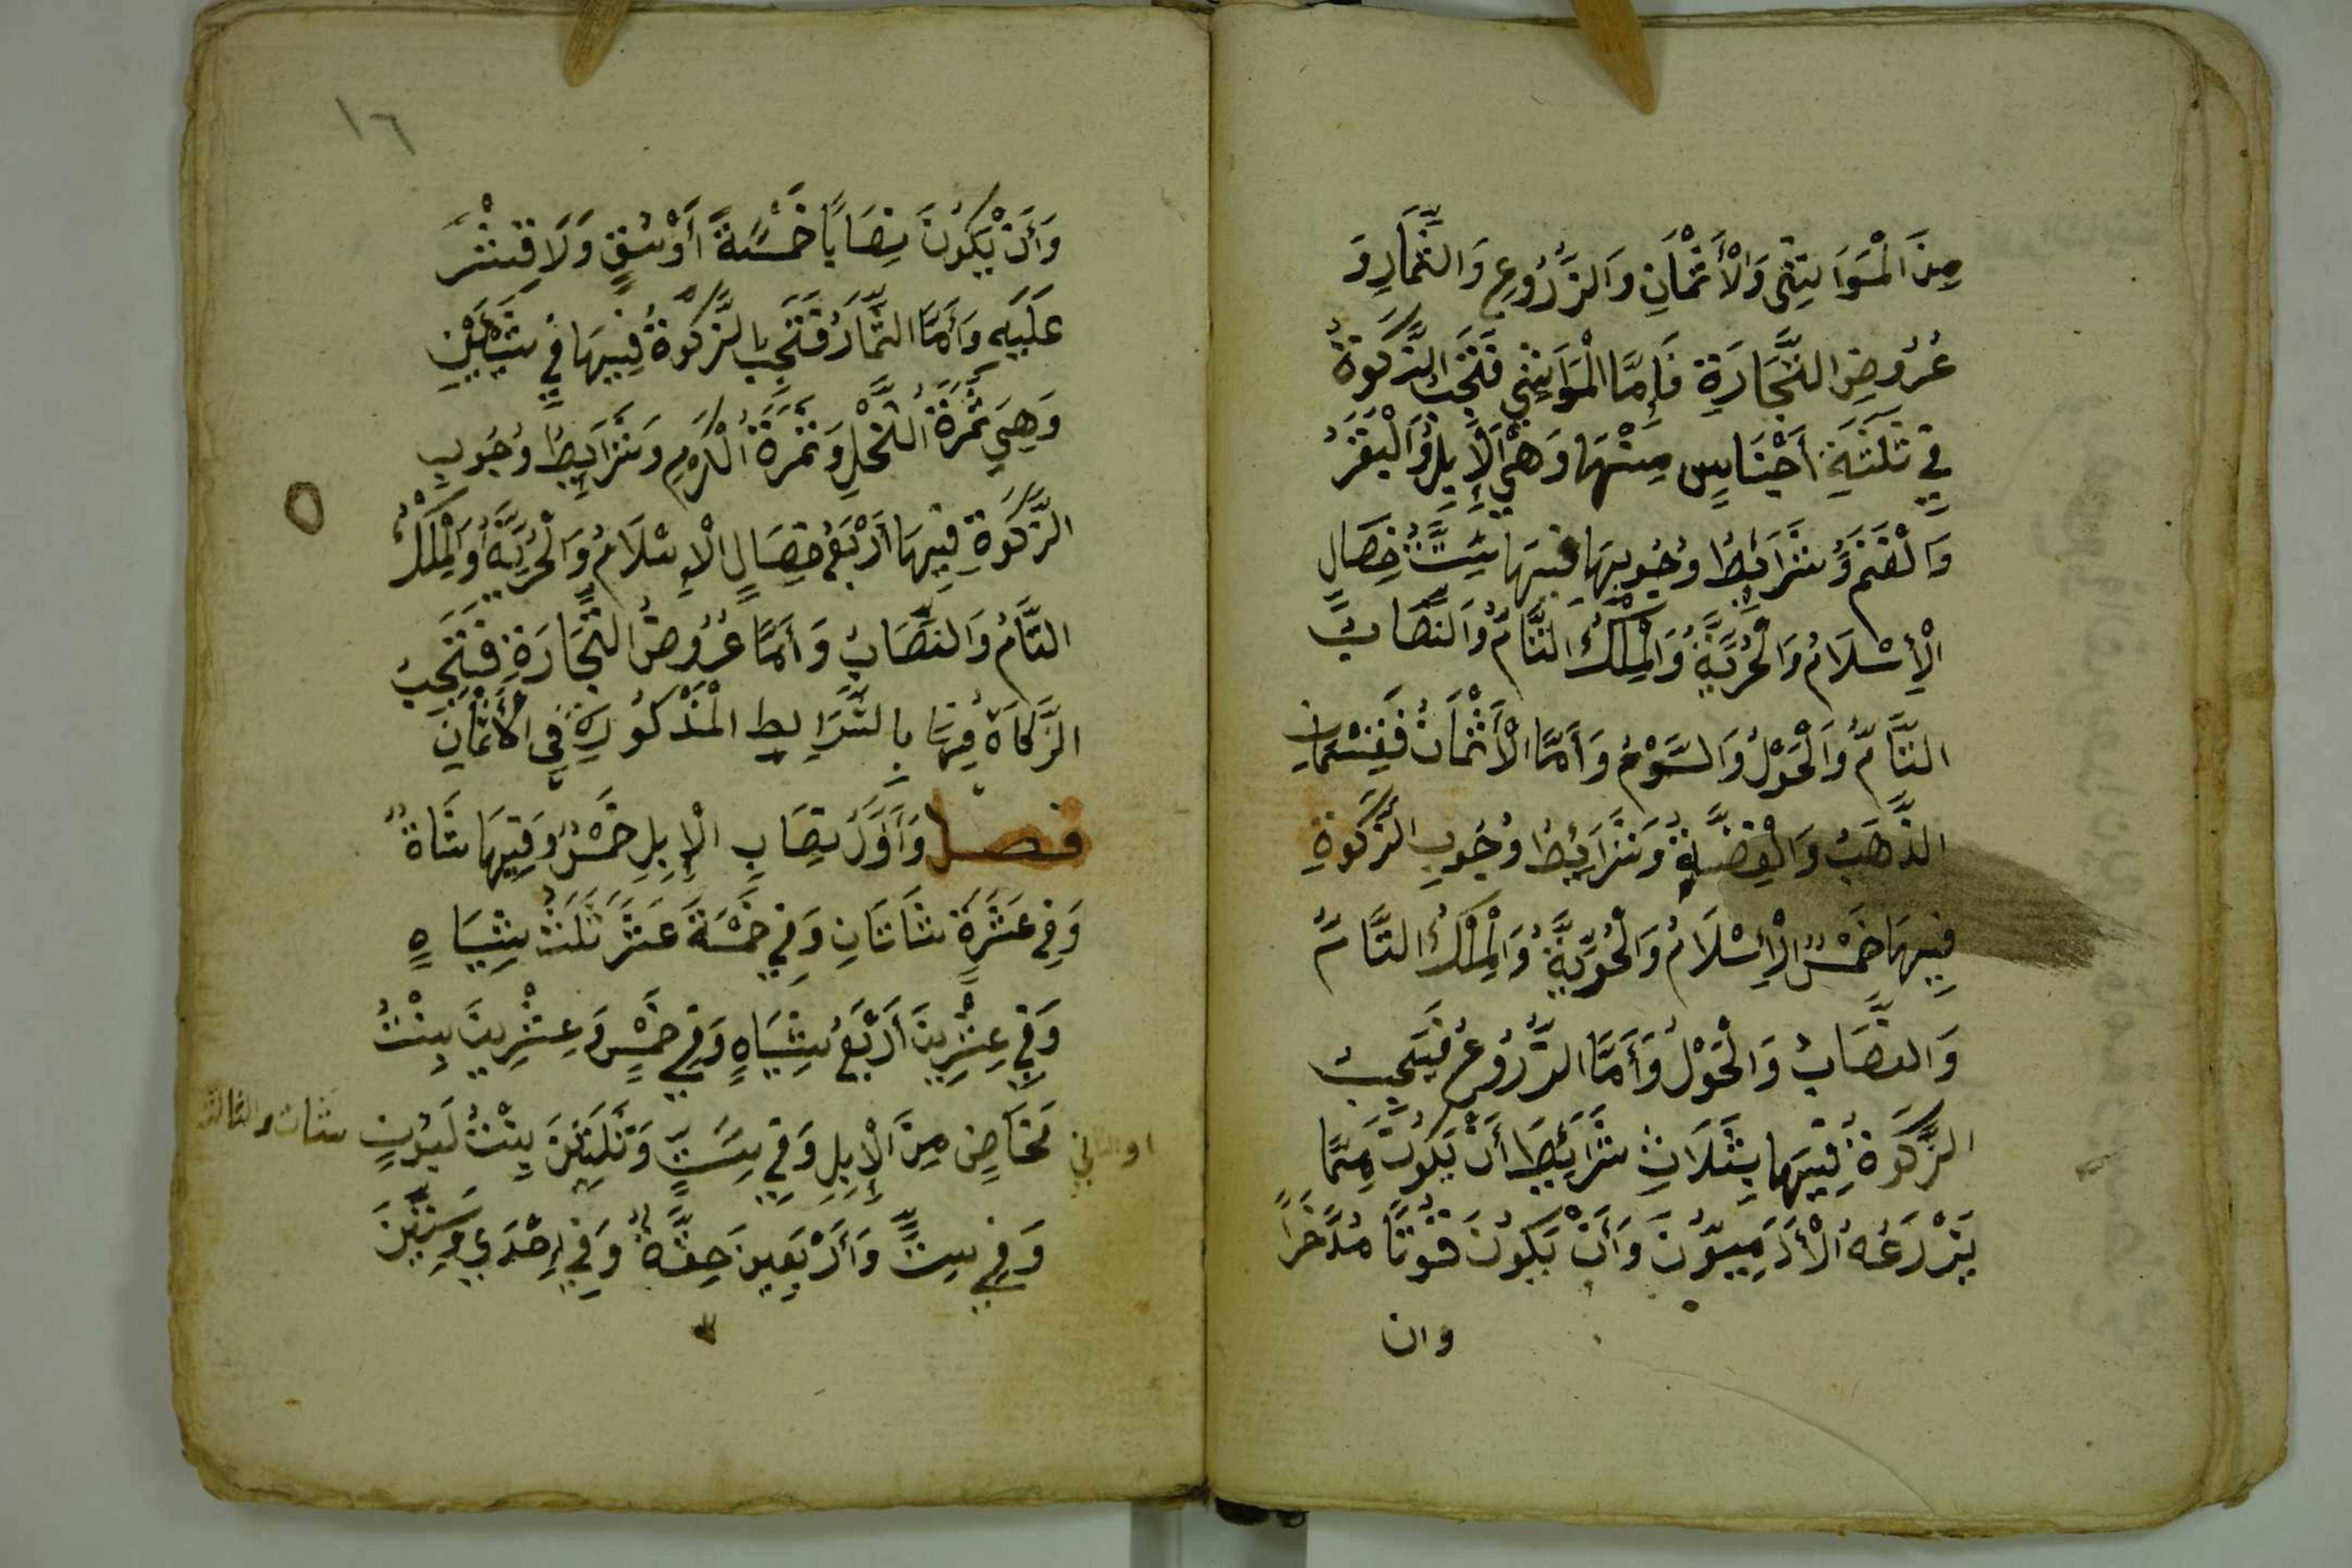 مِنَ الْمَوَاشِي وَالْأَثْمَانِ وَالزُّرُوعِ وَالثِّمَارِ وَ
عُرُوضِ التِّجَارَةِ فَإِمَّا الْمَوَاشِي فَتَجِبُ الزَّكَوةُ
فِي ثَلَثَةِ أَجْنَاسٍ مِنْهَا وَهِيَ الْإِبِلُ وَالْبَقَرُ
وَالْغَنَمُ وَشَرَائِطُ وُجُوبِهَا فِيهَا سِتَّةُ خِصَالٍ
الْإِسْلَامُ وَالْحُرِّيَّةُ وَالْمِلْكُ التَّامُّ وَالنِّصَابُ
التَّامُّ وَالْحَوْلُ وَالسَّوْمُ وَأَمَّا الْأَثْمَانُ فَقِسْمَانِ
الذَّهَبُ وَالْفِضَّةُ وَشَرَائِطُ وُجُوبِ الزَّكَوةِ
فِيهَا خَمْسٌ الْإِسْلَامُ وَالْحُرِّيَّةُ وَالْمِلْكُ التَّامُّ
وَالنِّصَابُ وَالْحَوْلُ وَأَمَّا الزُّرُوعُ فَيَجِبُ
الزَّكَوةُ فِيهَا بِثَلَاثِ شَرَائِطَ أَنْ يَكُونَ مِمَّا
يَزْرَعُهُ الْأَدَمِيُّونَ وَأَنْ يَكُونَ قُوْتًا مُدَّخَرًا
وان
١٦
وَأَنْ يَكُونَ نِصَابًا خَمْسَةَ أَوْسُقٍ وَلَا قِشْرَ
عَلَيْهِ وَأَمَّا الثِّمَارُ فَتَجِبُ الزَّكَوةُ فِيهَا فِي شَيْئَيْنِ
وَهِيَ ثَمْرَةُ النَّخْلِ وَثَمَرَةُ الْكَرْمِ وَشَرَايِطُ وُجُوبِ
الزَّكَوةِ فِيهَا أَرْبَعُ خِصَالٍ الْإِسْلَامُ وَالْحُرِّيَّةُ وَالْمِلْكُ
التَّامُ وَالنِّصَابُ وَأَمَّا عُرُوضُ التِّجَارَةِ فَتَجِبُ
الزَّكَاةُ فِيهَا بِالشَّرَايِطِ الْمَذْكُورَةِ فِي الْأَثْمَانِ
فصل وَأَوَّلُ نِصَابِ الْإِبِلِ خَمْسٌ وَفِيهَا شَاةٌ
وَفِي عَشْرَةٍ شَاتَانِ وَفِي خَمْسَةَ عَشَرَ ثَلَثُ شِيَاهٍ
وَفِي عِشْرِينَ أَرْبَعُ شِيَاهٍ وَفِي خَمْسٍ وَعِشْرِينَ بِنْتُ
مَخَاضٍ مِنَ الْإِبِلِ وَفِي سِتٍّ وَثَلَثِينَ بِنْتُ لَبُونٍ
وَفِي سِتٍّ وَأَرْبَعِينَ حِقَّةٌ وَفِي إِحْدَي وَسِتِّينَ